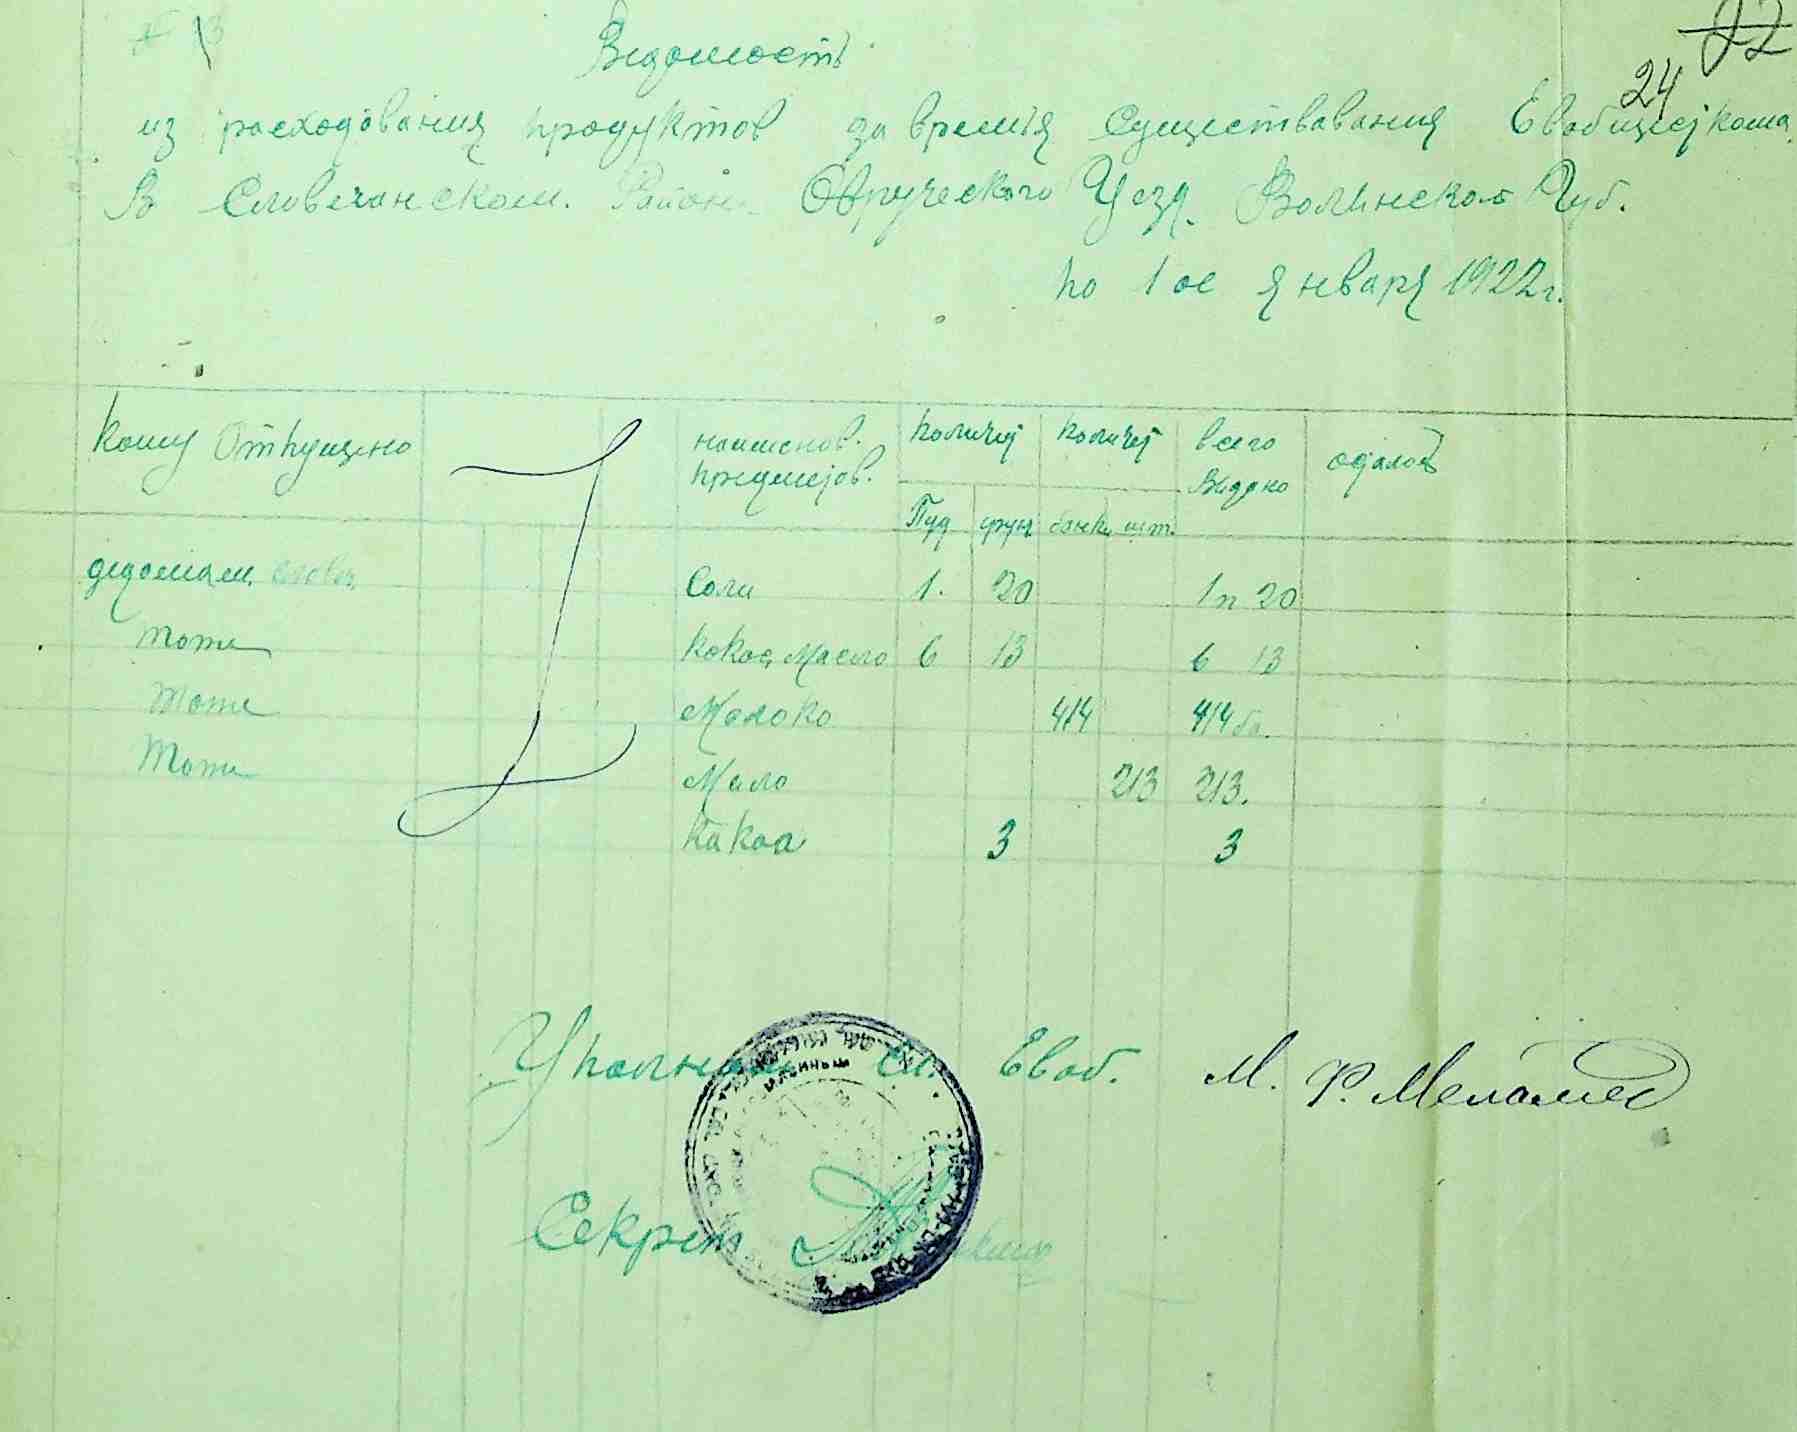 22
24
Ведомость
из расходования продуктов за время существавания Евобщесткома
В Словечанском. Район. Овручского Уезд. Волинской Губ.
по 1 ое января 1922 г.
Кому отпущено наименов. предметов. количест количест всего видано осталось
Пуд фун банк. шт.
дедомам. словеч. Соли 1. 20 1 п 20
тоже кокос. Масло 6 13 6 13
тоже Молоко 414 414 ба.
тоже Мило 213 213.
Какоа 3 3
Уполном. сл. Евоб. М. Ф. Меламед
Секрет